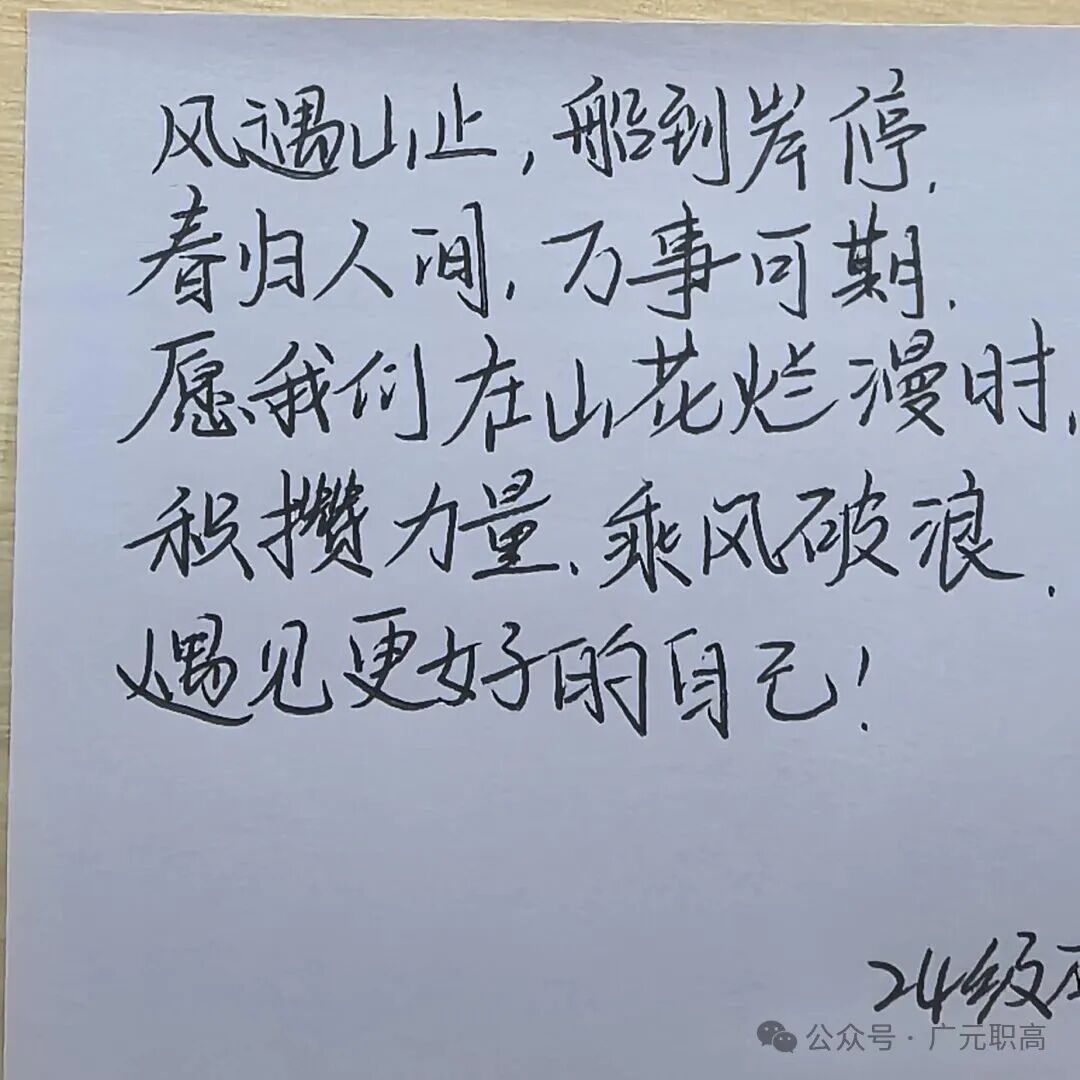 风遇山止,船到岸停.
春归人间,万事可期.
愿我们在山花烂漫时,
积攒力量、乘风破浪.
遇见更好的自己!
24级
公众号·广元职高